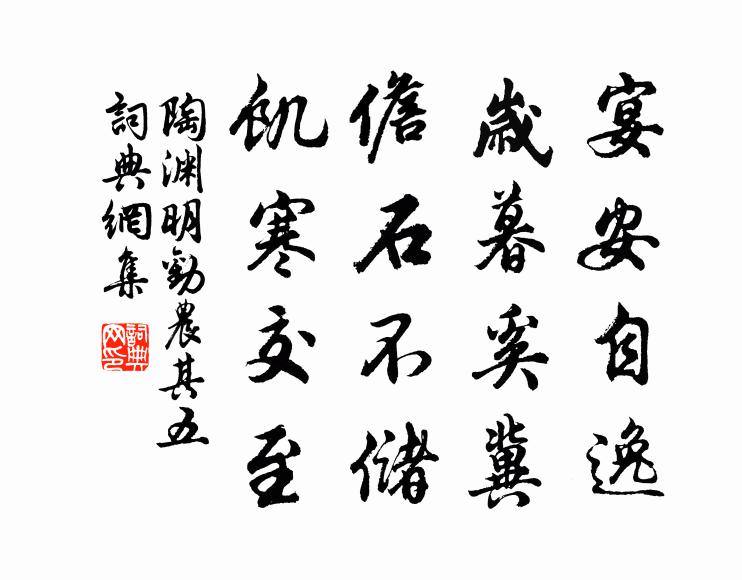 宴安自逸
歲暮奚冀
儋石不儲
飢寒交至
陶渊明勸農其五
詞典網集
詞典网印